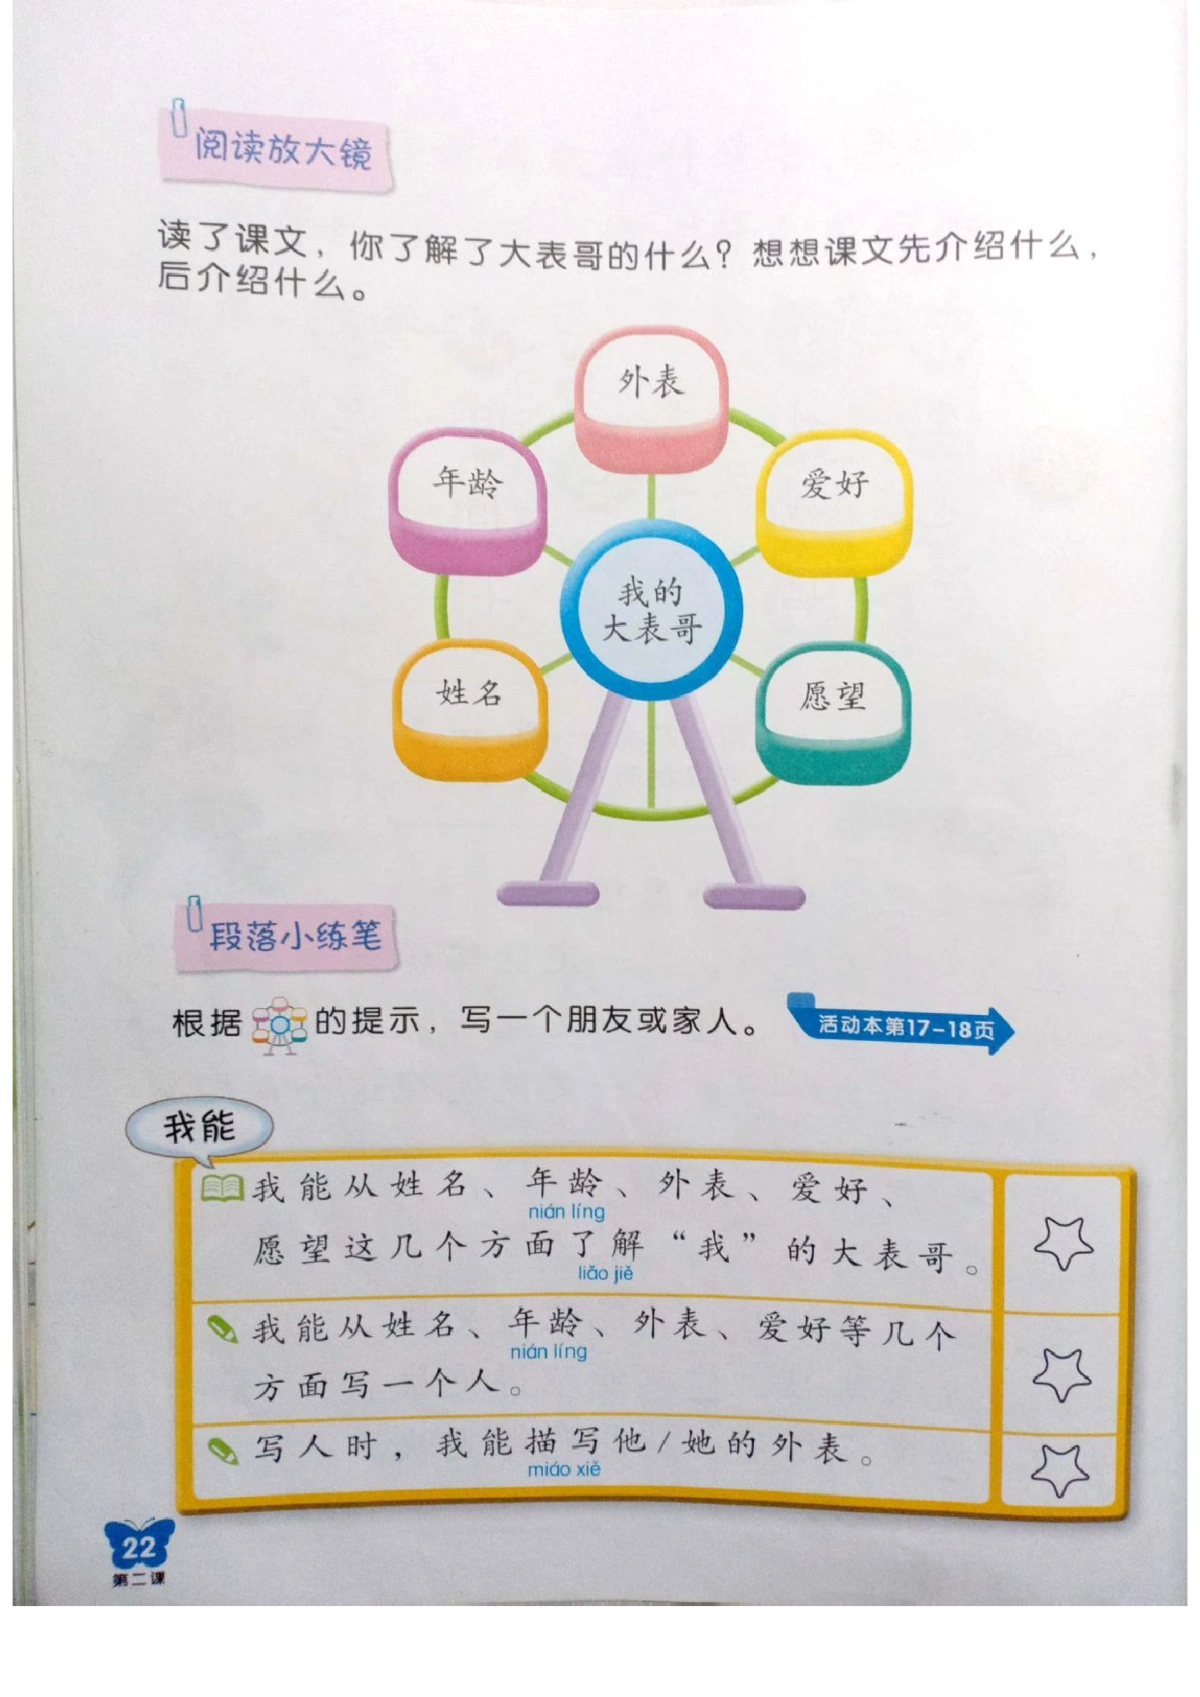 阅读放大镜
读了课文，你了解了大表哥的什么？想想课文先介绍什么，
后介绍什么。
外表
年龄
爱好
我的
大表哥
姓名
愿望
段落小练笔
根据的提示，写一个朋友或家人。
活动本第17-18页
我能
我能从姓名、年龄、外表、爱好、
nián líng
愿望这几个方面了解“我”的大表哥。
liǎo jiě
我能从姓名、年龄、外表、爱好等几个
nián líng
方面写一个人。
写人时，我能描写他/她的外表。
miáo xiě
22
第二课